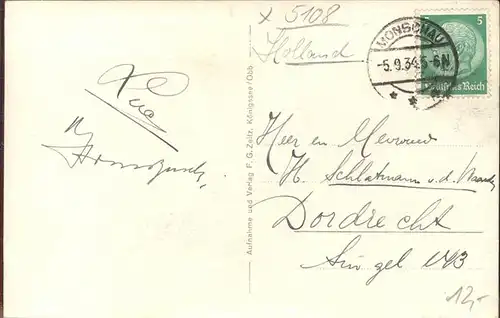 x 5108
Holland
MONSCHAU
-5.9.34.5-6N
5
Deutsches Reich
Aufnahme und Verlag F. G. Zeitz, Königssee/Obb.
Heer en Mevrouw
H. Schlatmann v. d.
Dordrecht
Singel 143
12,-